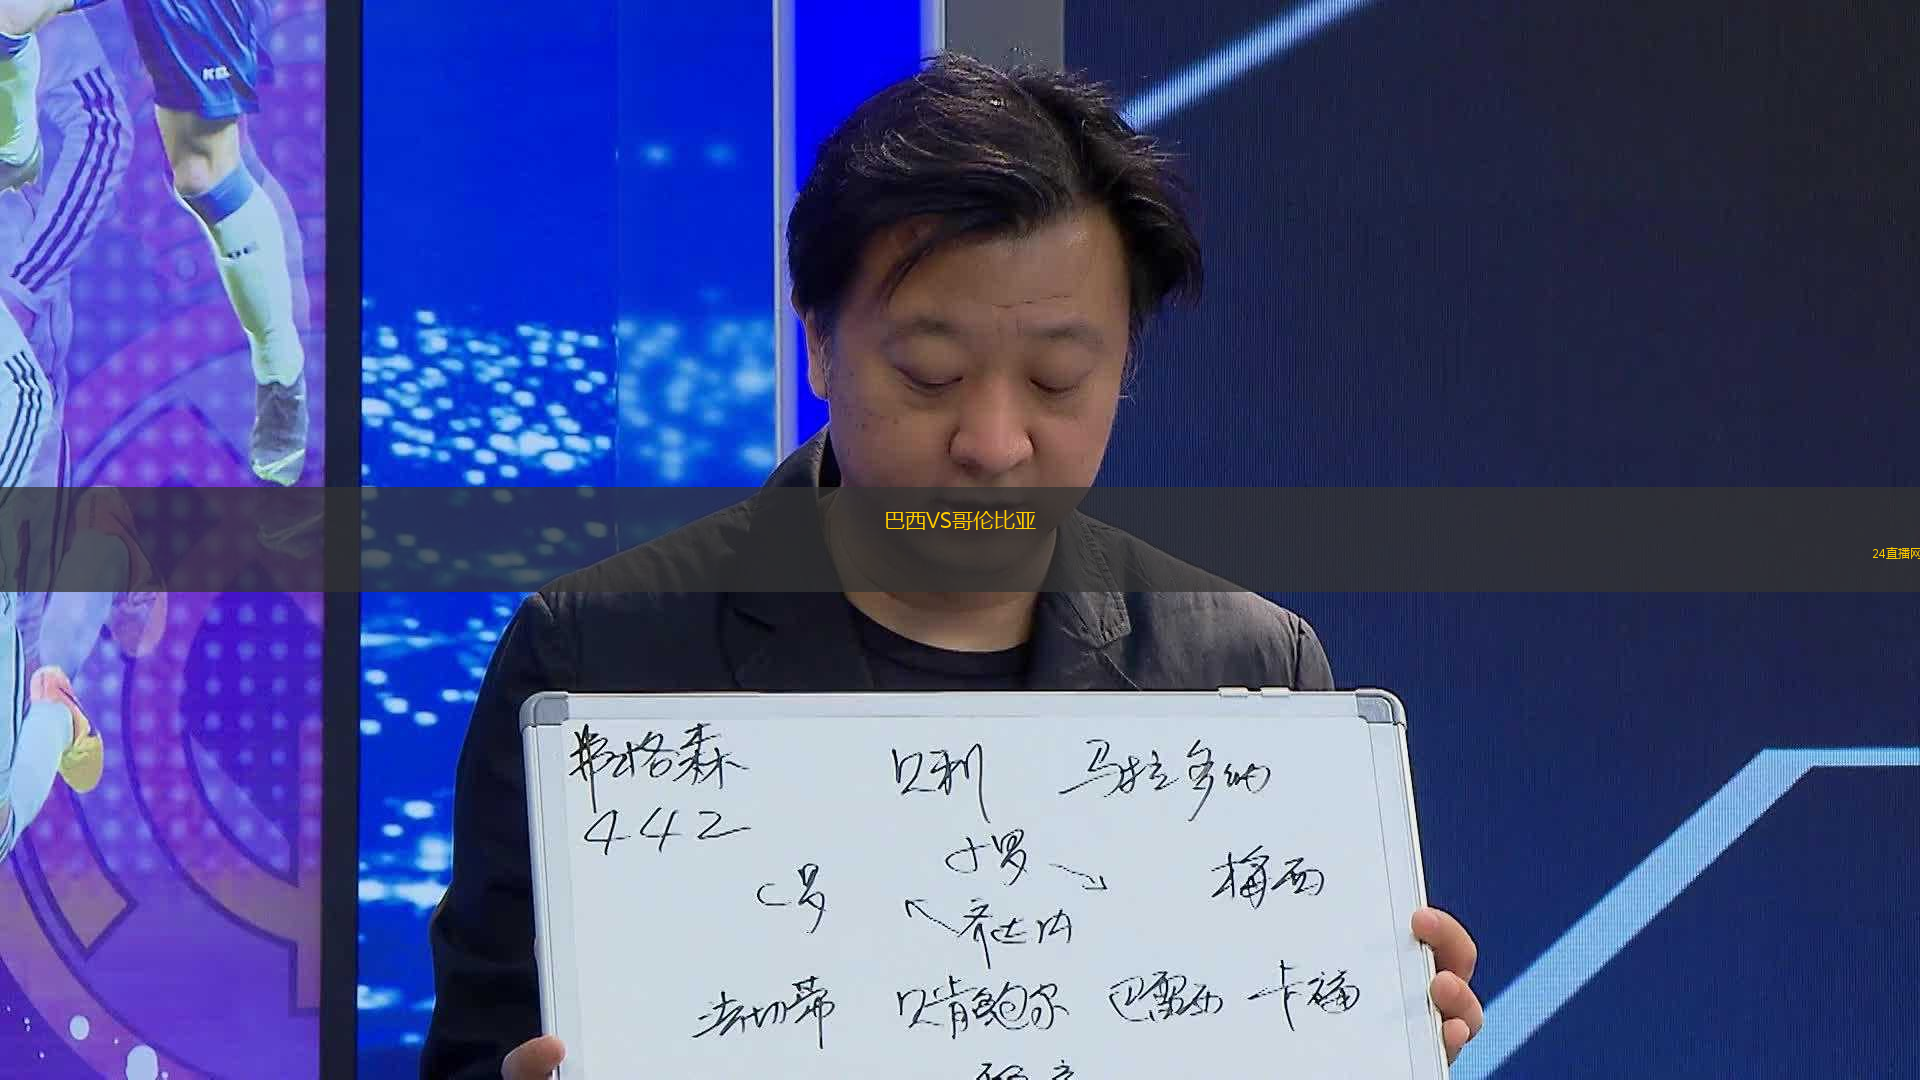 巴西VS哥伦比亚
24直播网
弗格森 贝利 马拉多纳
442
小罗
C罗 梅西
齐达内
法切蒂 贝肯鲍尔 巴雷西 卡福